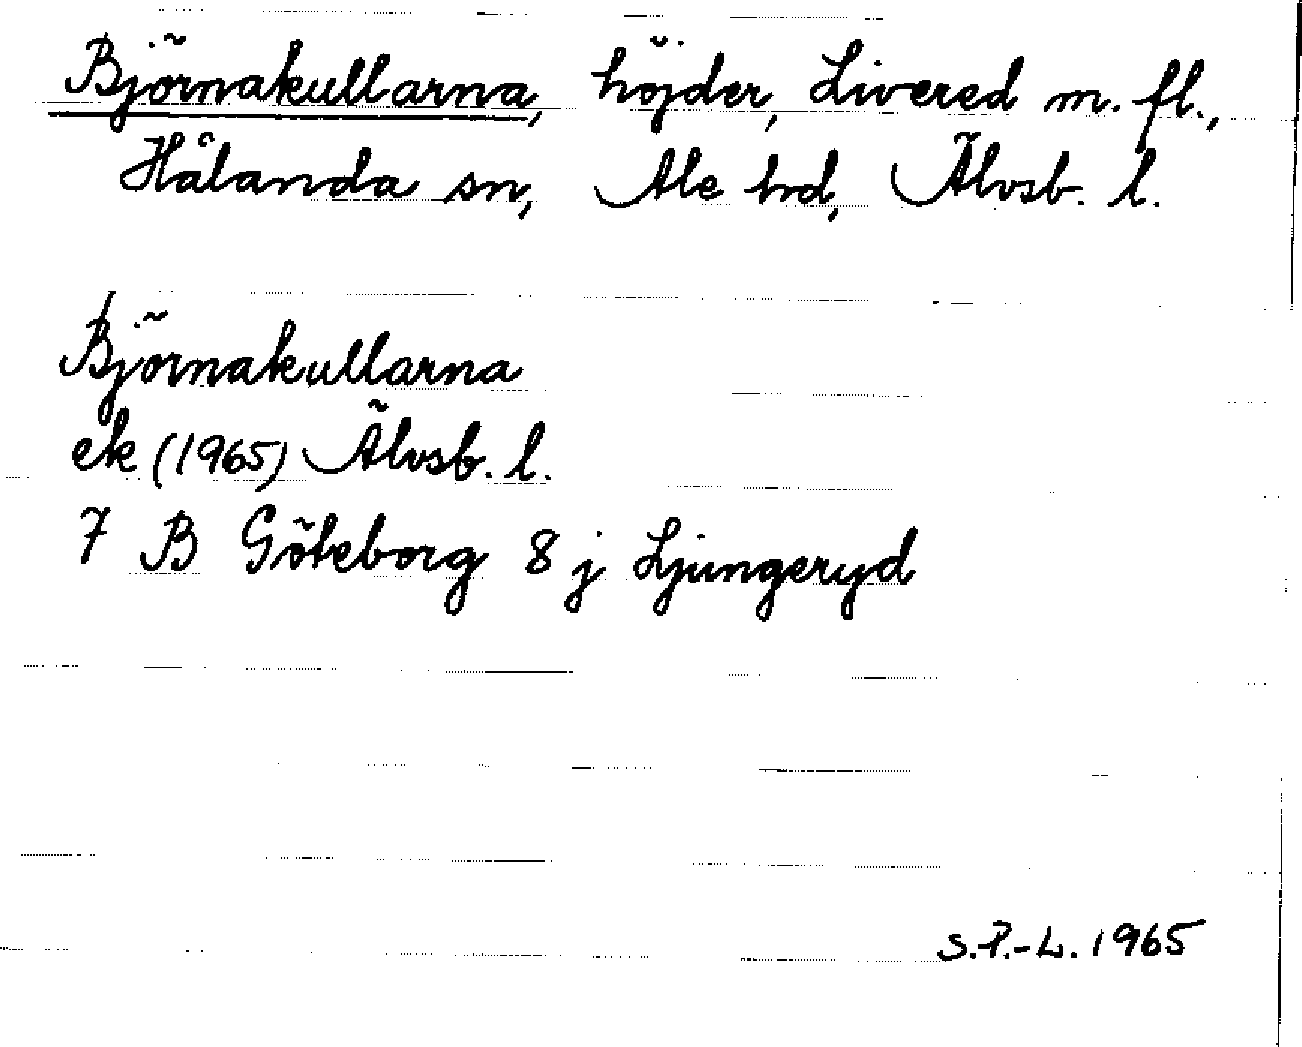 Björnakullarna, höjder, Livered m. fl.,
Hålanda sn, Ale hd, Älvsb. l.
Björnakullarna
ek (1965) Älvsb. l.
7 B Göteborg 8 j Ljungeryd
S.P.-L. 1965